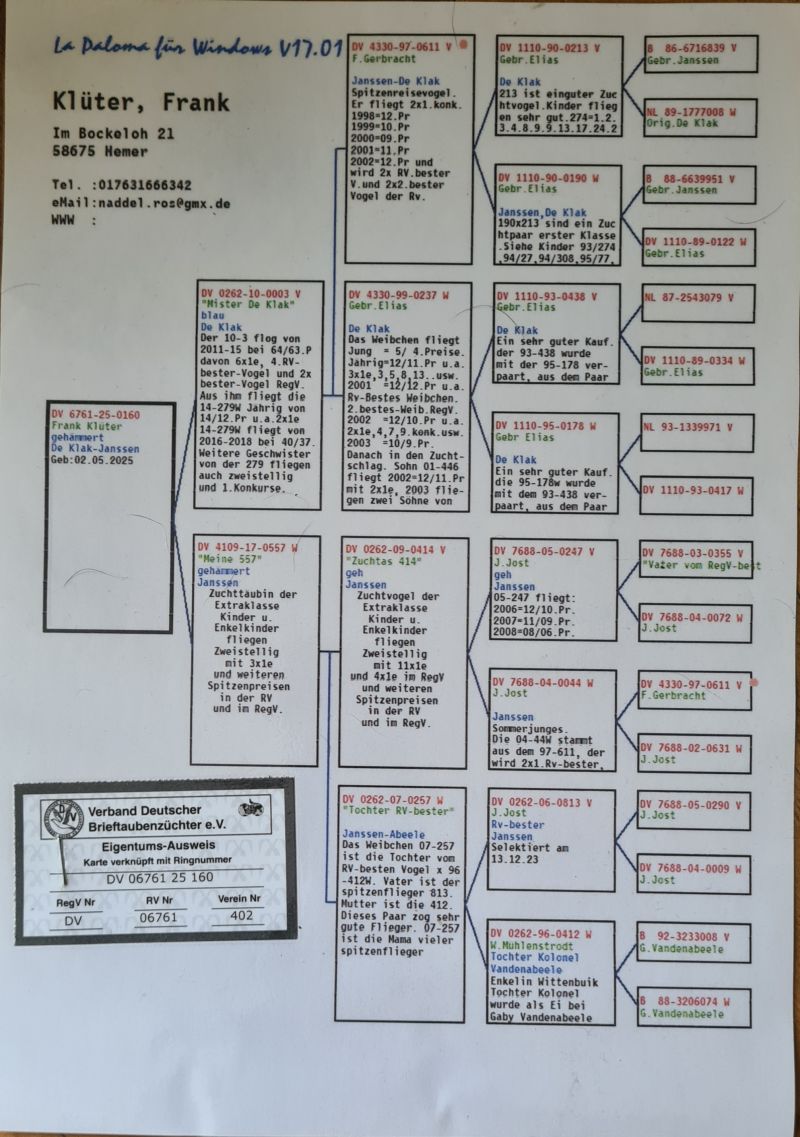 La Paloma für Windows V17.01
Klüter, Frank
Im Bockeloh 21
58675 Hemer
Tel. :017631666342
eMail:naddel.ros@gmx.de
WWW :
DV 6761-25-0160
Frank Klüter
gehämmert
De Klak-Janssen
Geb:02.05.2025
DV 0262-10-0003 V
"Mister De Klak"
blau
De Klak
Der 10-3 flog von
2011-15 bei 64/63.P
davon 6x1e, 4.RV-
bester-Vogel und 2x
bester-Vogel RegV.
Aus ihm fliegt die
14-279W Jährig von
14/12.Pr u.a.2x1e
14-279W fliegt von
2016-2018 bei 40/37.
Weitere Geschwister
von der 279 fliegen
auch zweistellig
und 1.Konkurse.
DV 4109-17-0557 W
"Meine 557"
gehämmert
Janssen
Zuchttäubin der
Extraklasse
Kinder u.
Enkelkinder
fliegen
Zweistellig
mit 3x1e
und weiteren
Spitzenpreisen
in der RV
und im RegV.
DV 4330-97-0611 V
F.Gerbracht
Janssen-De Klak
Spitzenreisevogel.
Er fliegt 2x1.konk.
1998=12.Pr
1999=10.Pr
2000=09.Pr
2001=11.Pr
2002=12.Pr und
wird 2x RV.bester
V.und 2x2.bester
Vogel der Rv.
DV 4330-99-0237 W
Gebr.Elias
De Klak
Das Weibchen fliegt
Jung = 5/ 4.Preise.
Jährig=12/11.Pr u.a.
3x1e,3,5,8,13..usw.
2001 =12/12.Pr u.a.
Rv-Bestes Weibchen.
2.bestes-Weib.RegV.
2002 =12/10.Pr u.a.
2x1e,4,7,9.konk.usw.
2003 =10/9.Pr.
Danach in den Zucht-
schlag. Sohn 01-446
fliegt 2002=12/11.Pr
mit 2x1e, 2003 flie-
gen zwei Söhne von
DV 0262-09-0414 V
"Zuchtas 414"
geh
Janssen
Zuchtvogel der
Extraklasse
Kinder u.
Enkelkinder
fliegen
Zweistellig
mit 11x1e
und 4x1e im RegV
und weiteren
Spitzenpreisen
in der RV
und im RegV.
DV 0262-07-0257 W
"Tochter RV-bester"
Janssen-Abeele
Das Weibchen 07-257
ist die Tochter vom
RV-besten Vogel x 96
-412W. Vater ist der
spitzenflieger 813.
Mutter ist die 412.
Dieses Paar zog sehr
gute Flieger. 07-257
ist die Mama vieler
spitzenflieger
DV 1110-90-0213 V
Gebr.Elias
De Klak
213 ist einguter Zuc
htvogel.Kinder flieg
en sehr gut.274=1.2.
3.4.8.9.9.13.17.24.2
DV 1110-90-0190 W
Gebr.Elias
Janssen,De Klak
190x213 sind ein Zuc
htpaar erster Klasse
.Siehe Kinder 93/274
,94/27,94/308,95/77,
DV 1110-93-0438 V
Gebr.Elias
De Klak
Ein sehr guter Kauf.
der 93-438 wurde
mit der 95-178 ver-
paart, aus dem Paar
DV 1110-95-0178 W
Gebr Elias
De Klak
Ein sehr guter Kauf.
die 95-178w wurde
mit dem 93-438 ver-
paart, aus dem Paar
DV 7688-05-0247 V
J.Jost
geh
Janssen
05-247 fliegt:
2006=12/10.Pr.
2007=11/09.Pr.
2008=08/06.Pr.
DV 7688-04-0044 W
J.Jost
Janssen
Sommerjunges.
Die 04-44W stammt
aus dem 97-611, der
wird 2x1.Rv-bester,
DV 0262-06-0813 V
J.Jost
Rv-bester
Janssen
Selektiert am
13.12.23
DV 0262-96-0412 W
W.Mühlenstrodt
Tochter Kolonel
Vandenabeele
Enkelin Wittenbuik
Tochter Kolonel
wurde als Ei bei
Gaby Vandenabeele
B 86-6716839 V
Gebr.Janssen
NL 89-1777008 W
Orig.De Klak
B 88-6639951 V
Gebr.Janssen
DV 1110-89-0122 W
Gebr.Elias
NL 87-2543079 V
DV 1110-89-0334 W
Gebr.Elias
NL 93-1339971 V
DV 1110-93-0417 W
DV 7688-03-0355 V
"Vater vom RegV-best
DV 7688-04-0072 W
J.Jost
DV 4330-97-0611 V
F.Gerbracht
DV 7688-02-0631 W
J.Jost
DV 7688-05-0290 V
J.Jost
DV 7688-04-0009 W
J.Jost
B 92-3233008 V
G.Vandenabeele
B 88-3206074 W
G.Vandenabeele
Verband Deutscher
Brieftaubenzüchter e.V.
Eigentums-Ausweis
Karte verknüpft mit Ringnummer
DV 06761 25 160
RegV Nr RV Nr Verein Nr
DV 06761 402